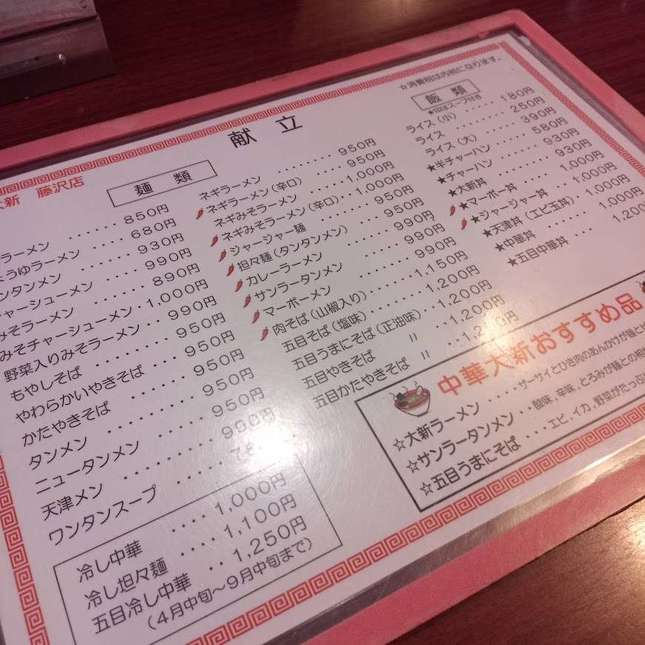 献立
☆消費税は内税になります。
大新 藤沢店
麺類
ラーメン ‥‥‥ 850円
ようゆラーメン ‥‥ 680円
ンタンメン ‥‥‥ 930円
チャーシューメン ‥‥ 990円
みそラーメン ‥‥‥ 890円
みそチャーシューメン ‥ 1,000円
野菜入りみそラーメン ‥ 990円
もやしそば ‥‥‥ 950円
やわらかいやきそば ‥‥ 950円
かたやきそば ‥‥‥ 950円
タンメン ‥‥‥ 950円
ニュータンメン ‥‥‥ 990円
天津メン
ワンタンスープ
冷し中華 ‥‥ 1,000円
冷し坦々麺 ‥‥ 1,100円
五目冷し中華 ‥‥ 1,250円
(4月中旬〜9月中旬まで)
ネギラーメン ‥‥‥ 950円
ネギラーメン(辛口) ‥‥ 950円
ネギみそラーメン ‥‥ 1,000円
ネギみそラーメン(辛口)‥ 1,000円
ジャージャー麺 ‥‥‥ 950円
坦々麺(タンタンメン) ‥‥ 950円
カレーラーメン ‥‥‥ 990円
サンラータンメン ‥‥‥ 950円
マーボーメン ‥‥‥ 990円
肉そば(山椒入り) ‥‥ 1,150円
五目そば(塩味) ‥‥ 1,200円
五目うまにそば(正油味) ‥ 1,200円
五目やきそば 〃 ‥‥ 1,200円
五目かたやきそば 〃
飯類
ライス(小) ‥‥ 180円
ライス ‥‥ 250円
ライス(大) ‥‥ 390円
★半チャーハン ‥‥ 580円
★チャーハン ‥‥ 930円
★大新丼 ‥‥ 930円
★マーボー丼 ‥‥ 1,000円
★ジャージャー丼 ‥‥ 1,000円
★天津丼(エビ玉丼) ‥ 1,000円
★中華丼
★五目中華丼
中華大新おすすめ品
☆大新ラーメン ‥‥ ザーサイとひき肉のあんかけが麺と
☆サンラータンメン ‥ 酸味、辛味、とろみが麺との相
☆五目うまにそば ‥‥ エビ、イカ、野菜がたっ